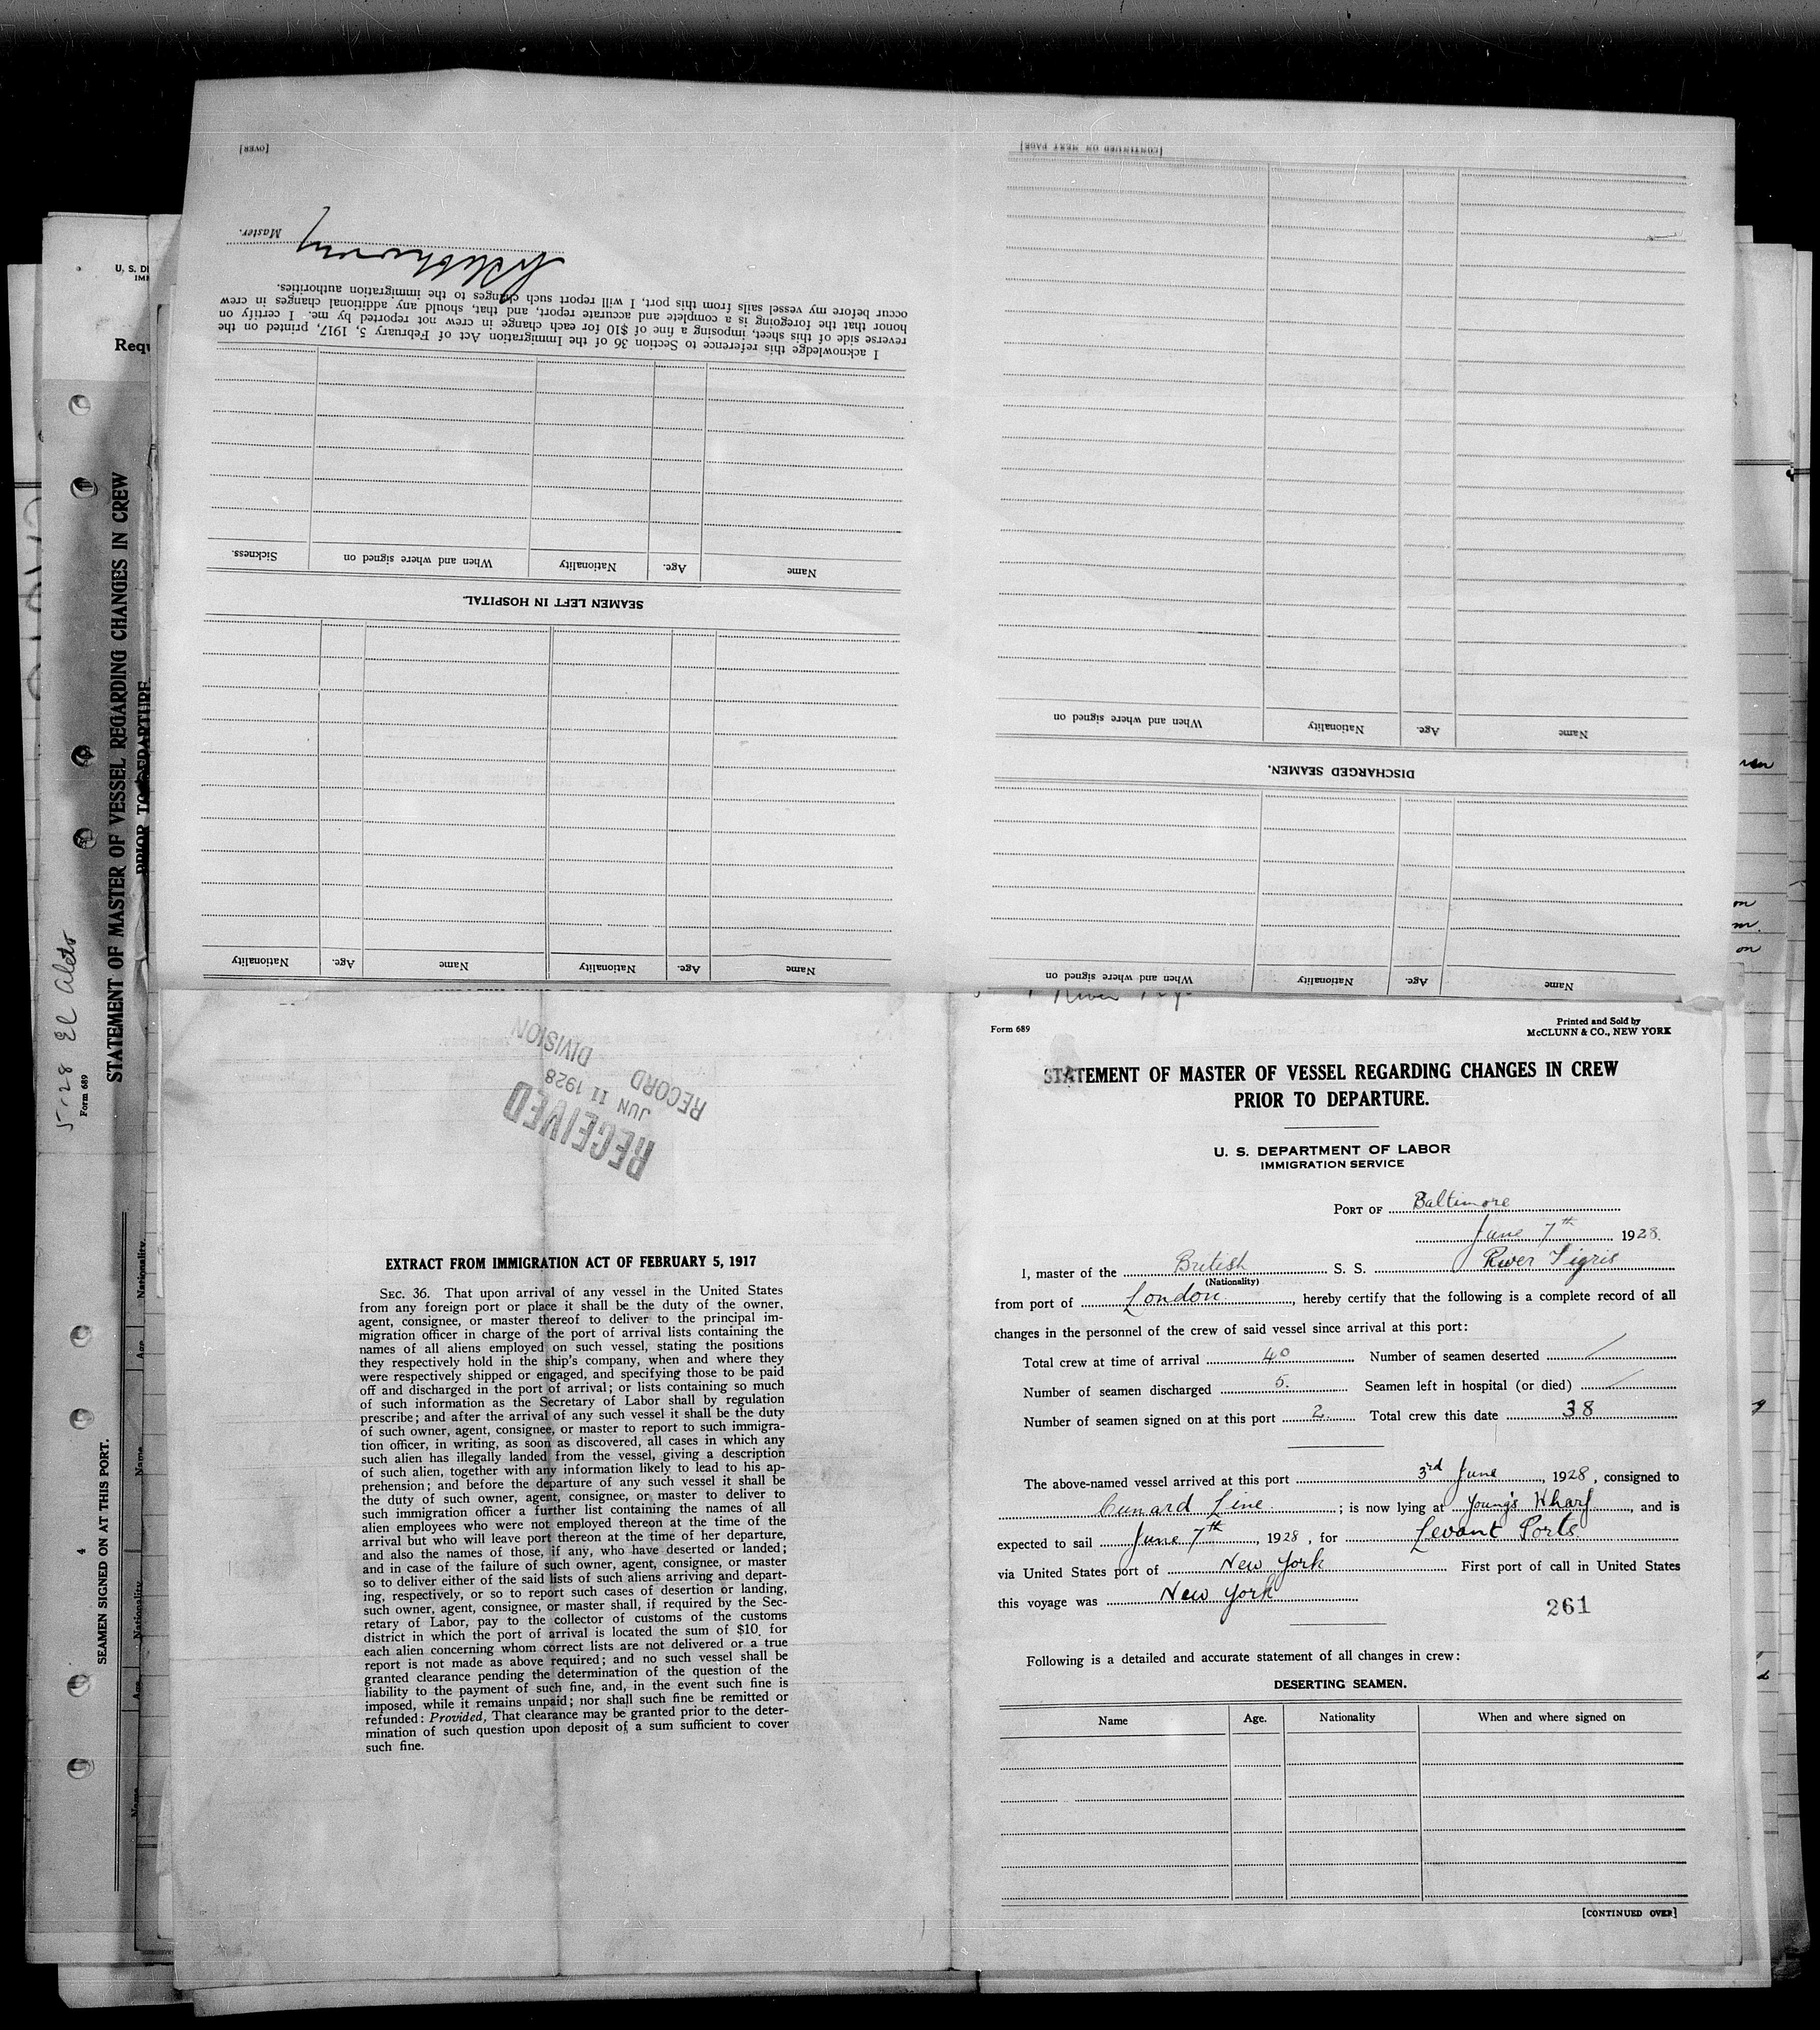 [OVER]
Master.
I acknowledge this reference to Section 36 of the Immigration Act of February 5, 1917, printed on the
reverse side of this sheet, imposing a fine of $10 for each change in crew not reported by me. I certify on
honor that the foregoing is a complete and accurate report, and that, should any additional changes in crew
occur before my vessel sails from this port, I will report such changes to the immigration authorities.
SEAMEN LEFT IN HOSPITAL.
Name Age. Nationality When and where signed on Sickness.
Name Age. Nationality Name Age. Nationality
[CONTINUED ON NEXT PAGE]
DISCHARGED SEAMEN.
Name Age. Nationality When and where signed on
Name Age. Nationality When and where signed on
U. S. D
Requ
STATEMENT OF MASTER OF VESSEL REGARDING CHANGES IN CREW
PRIOR TO DEPARTURE
Form 689
SEAMEN SIGNED ON AT THIS PORT.
4
Name Age Nationality Name Age Nationality
RECEIVED
JUN 11 1928
RECORD
DIVISION
EXTRACT FROM IMMIGRATION ACT OF FEBRUARY 5, 1917
SEC. 36. That upon arrival of any vessel in the United States
from any foreign port or place it shall be the duty of the owner,
agent, consignee, or master thereof to deliver to the principal im-
migration officer in charge of the port of arrival lists containing the
names of all aliens employed on such vessel, stating the positions
they respectively hold in the ship's company, when and where they
were respectively shipped or engaged, and specifying those to be paid
off and discharged in the port of arrival; or lists containing so much
of such information as the Secretary of Labor shall by regulation
prescribe; and after the arrival of any such vessel it shall be the duty
of such owner, agent, consignee, or master to report to such immigra-
tion officer, in writing, as soon as discovered, all cases in which any
such alien has illegally landed from the vessel, giving a description
of such alien, together with any information likely to lead to his ap-
prehension; and before the departure of any such vessel it shall be
the duty of such owner, agent, consignee, or master to deliver to
such immigration officer a further list containing the names of all
alien employees who were not employed thereon at the time of the
arrival but who will leave port thereon at the time of her departure,
and also the names of those, if any, who have deserted or landed;
and in case of the failure of such owner, agent, consignee, or master
so to deliver either of the said lists of such aliens arriving and depart-
ing, respectively, or so to report such cases of desertion or landing,
such owner, agent, consignee, or master shall, if required by the Sec-
retary of Labor, pay to the collector of customs of the customs
district in which the port of arrival is located the sum of $10. for
each alien concerning whom correct lists are not delivered or a true
report is not made as above required; and no such vessel shall be
granted clearance pending the determination of the question of the
liability to the payment of such fine, and, in the event such fine is
imposed, while it remains unpaid; nor shall such fine be remitted or
refunded: Provided, That clearance may be granted prior to the deter-
mination of such question upon deposit of a sum sufficient to cover
such fine.
Form 689
Printed and Sold by
McCLUNN & CO., NEW YORK
STATEMENT OF MASTER OF VESSEL REGARDING CHANGES IN CREW
PRIOR TO DEPARTURE.
U. S. DEPARTMENT OF LABOR
IMMIGRATION SERVICE
PORT OF Baltimore
June 7th 1928.
I, master of the British S. S. River Tigris
(Nationality)
from port of London, hereby certify that the following is a complete record of all
changes in the personnel of the crew of said vessel since arrival at this port:
Total crew at time of arrival 40 Number of seamen deserted /
Number of seamen discharged 5. Seamen left in hospital (or died) /
Number of seamen signed on at this port 2 Total crew this date 38
The above-named vessel arrived at this port 3rd June, 1928, consigned to
Cunard Line; is now lying at Young's Wharf, and is
expected to sail June 7th, 1928, for Levant Ports
via United States port of New York First port of call in United States
this voyage was New York
261
Following is a detailed and accurate statement of all changes in crew:
DESERTING SEAMEN.
Name Age. Nationality When and where signed on
[CONTINUED OVER]